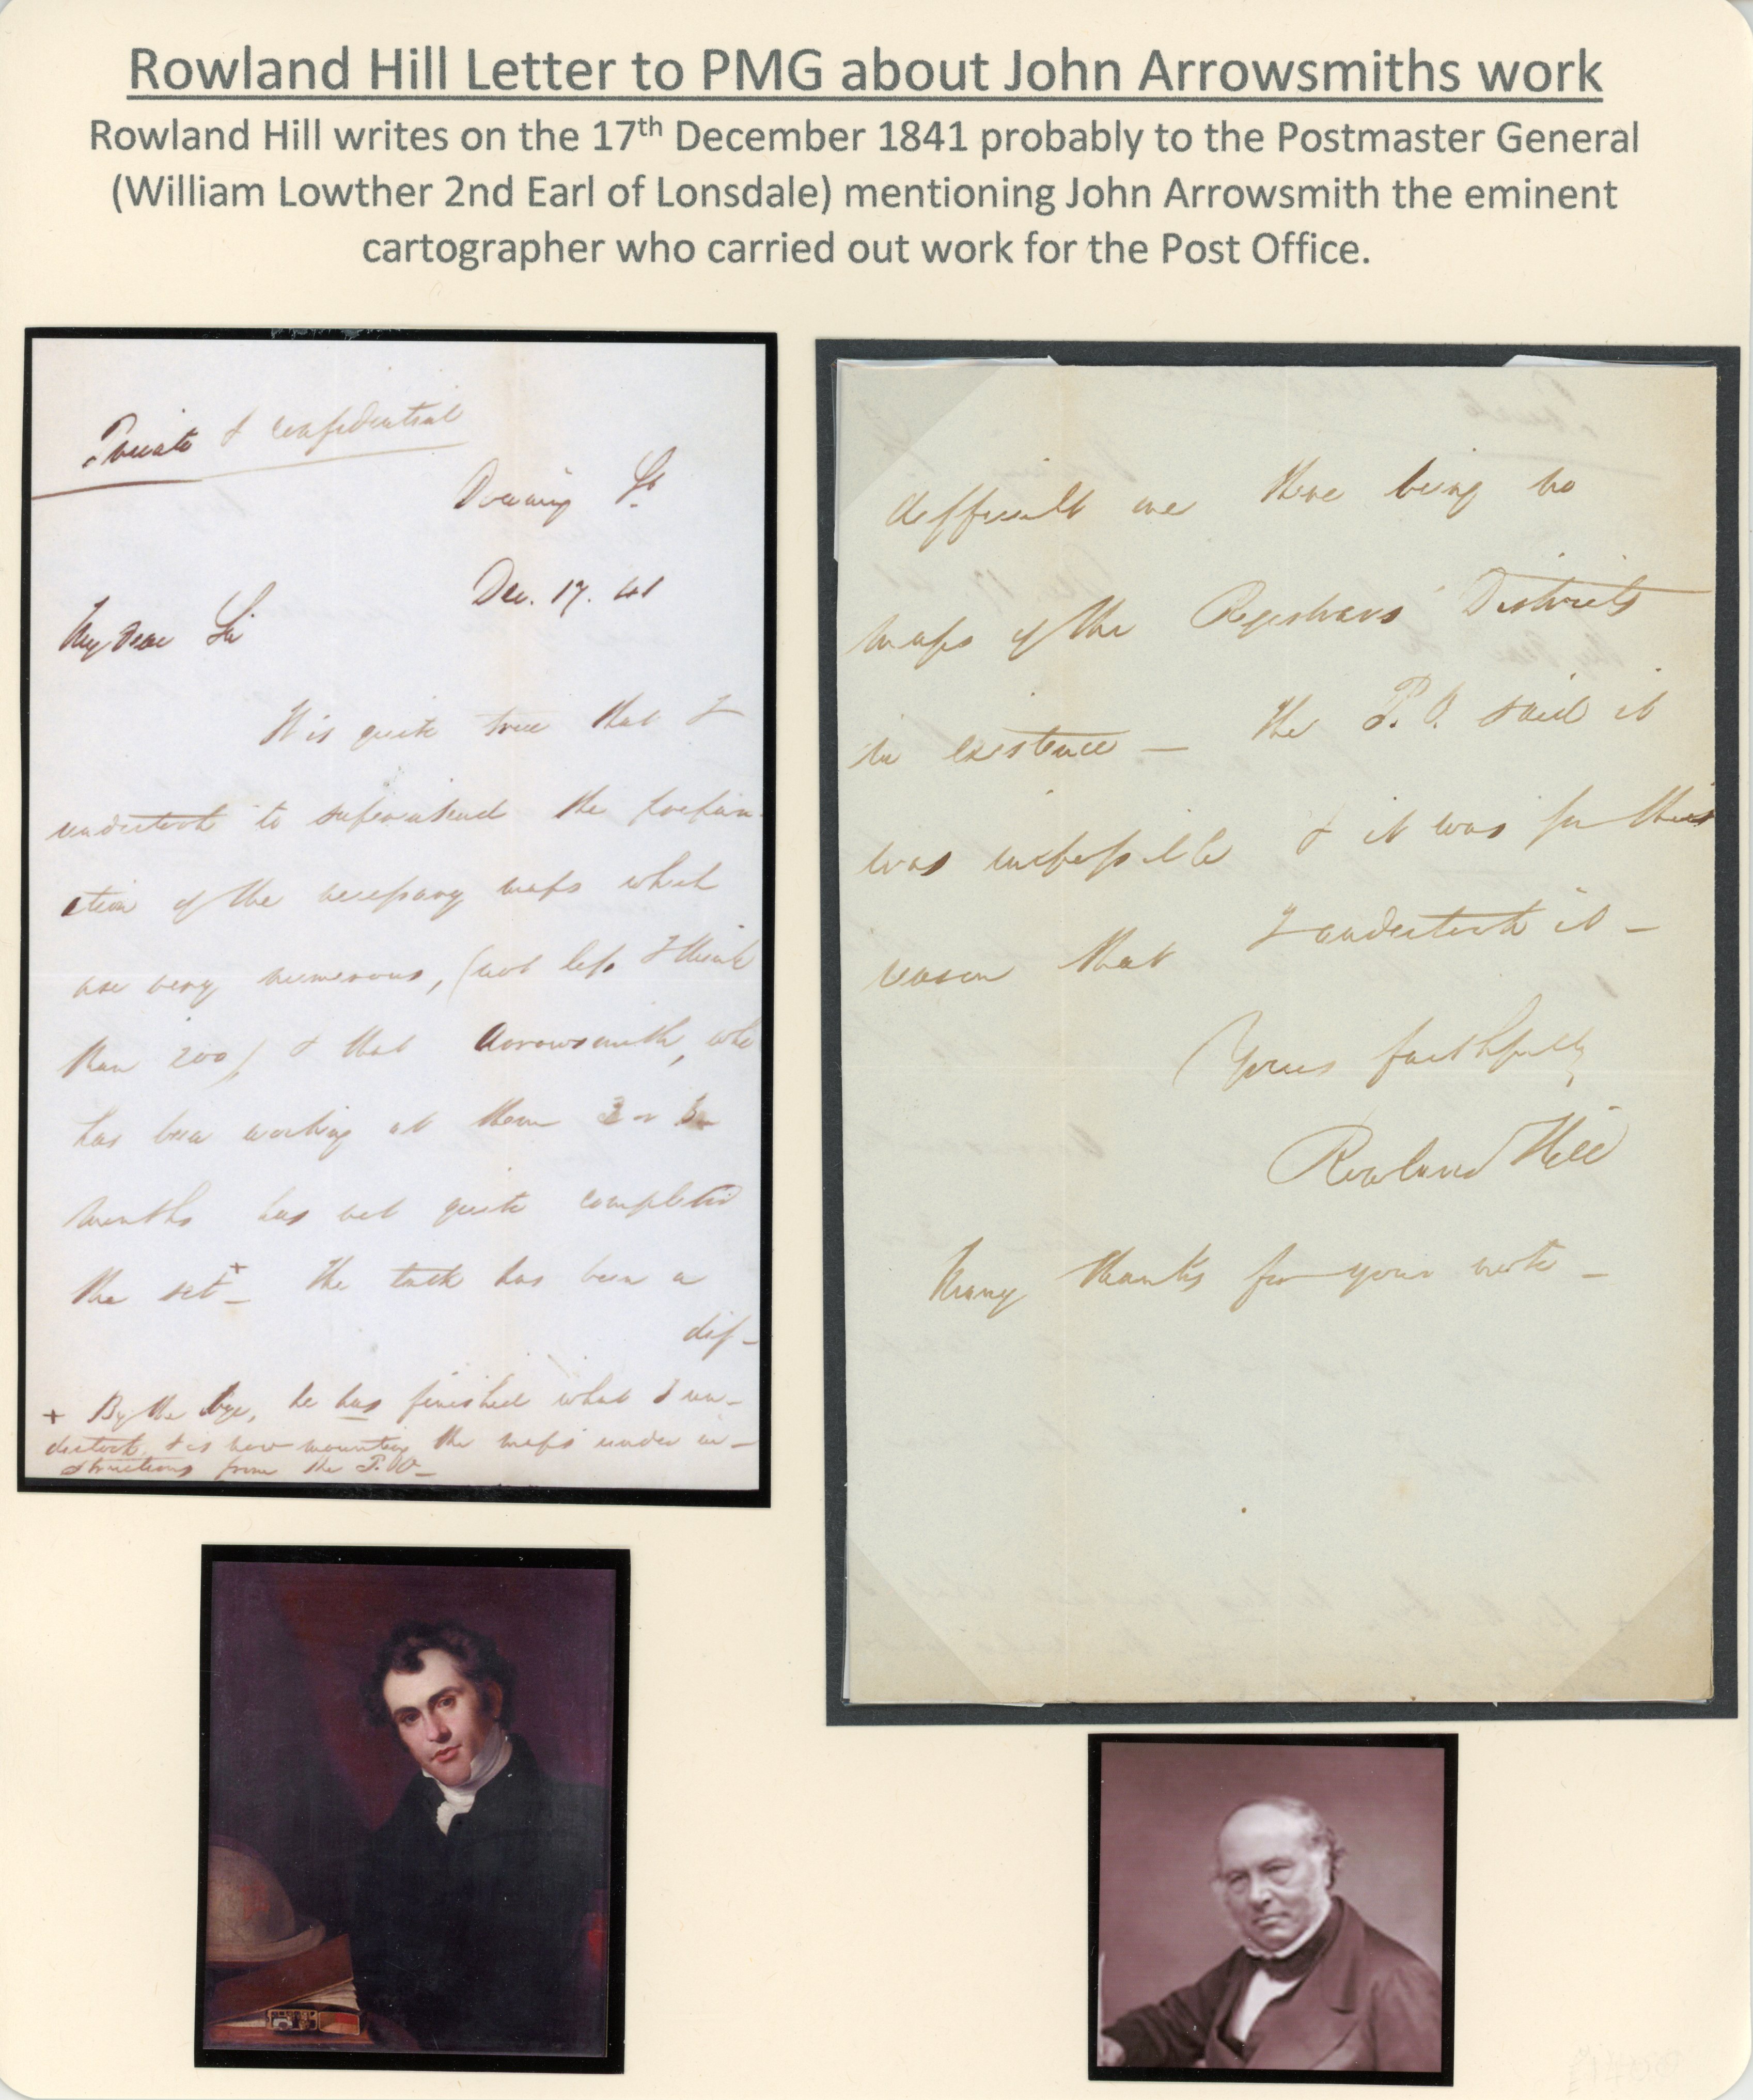 Rowland Hill Letter to PMG about John Arrowsmiths work
Rowland Hill writes on the 17th December 1841 probably to the Postmaster General
(William Lowther 2nd Earl of Lonsdale) mentioning John Arrowsmith the eminent
cartographer who carried out work for the Post Office.
Private & confidential
Downing St.
Dec. 17. 41
My dear Sir
It is quite true that I
undertook to superintend the prepar-
ation of the necessary maps which
are very numerous, (not less I think
than 200) & that Arrowsmith, who
has been working at them 2 or 3
months has not quite completed
the set + – The task has been a
dif–
+ By the bye, he has finished what I un–
dertook & is now mounting the maps under in–
structions from the P.O –
difficult one there being no
maps of the Registrars' Districts
in existence – the P.O. said it
was impossible & it was for this
reason that I undertook it –
Yours faithfully
Rowland Hill
Many thanks for your note –